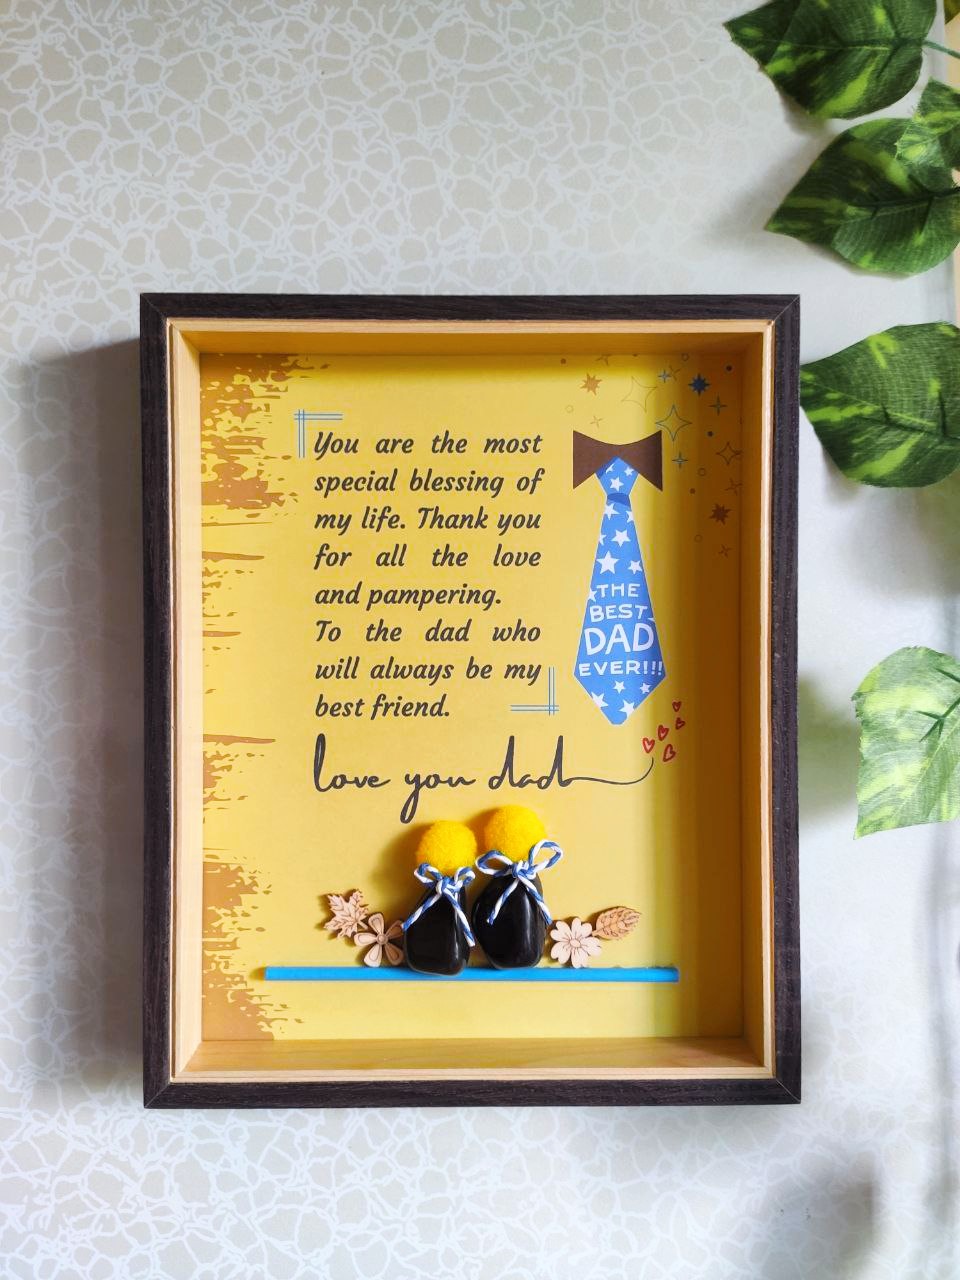 You are the most
special blessing of
my life. Thank you
for all the love
and pampering.
To the dad who
will always be my
best friend.
love you dad
THE
BEST
DAD
EVER!!!